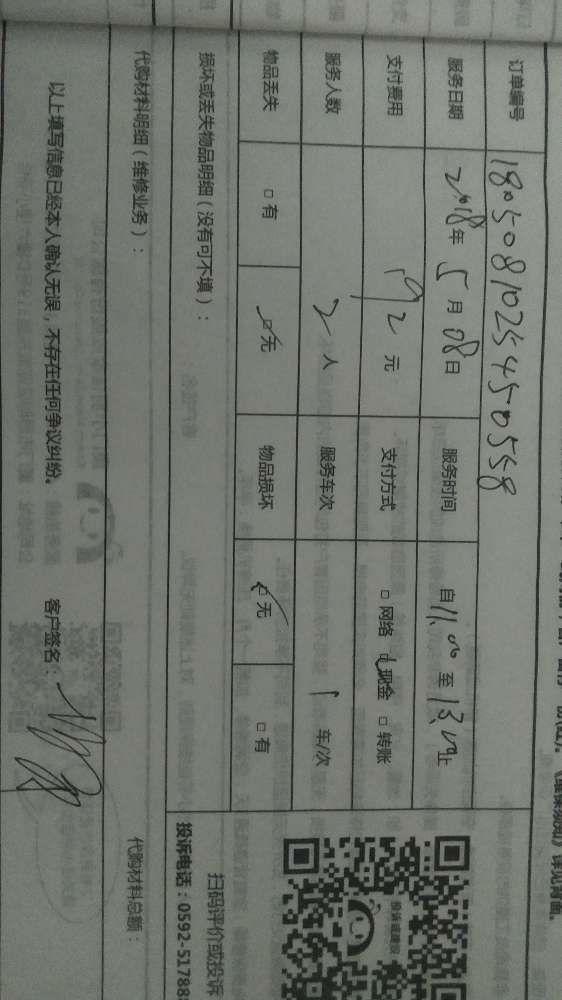 订单编号 1805081025450558
服务日期 2018年 5月 08日 服务时间 自 11.00 至 13.00 止
支付费用 192 元 支付方式 □ 网络 □ 现金 □ 转账
服务人数 2 人 服务车次 1 车/次
物品丢失 □ 有 □ 无 物品损坏 □ 无 □ 有
损坏或丢失物品明细（没有可不填）：
扫码评价或投诉
投诉电话：0592-51788
代购材料明细（维修业务）： 代购材料总额：
以上填写信息已经本人确认无误，不存在任何争议纠纷。 客户签名：